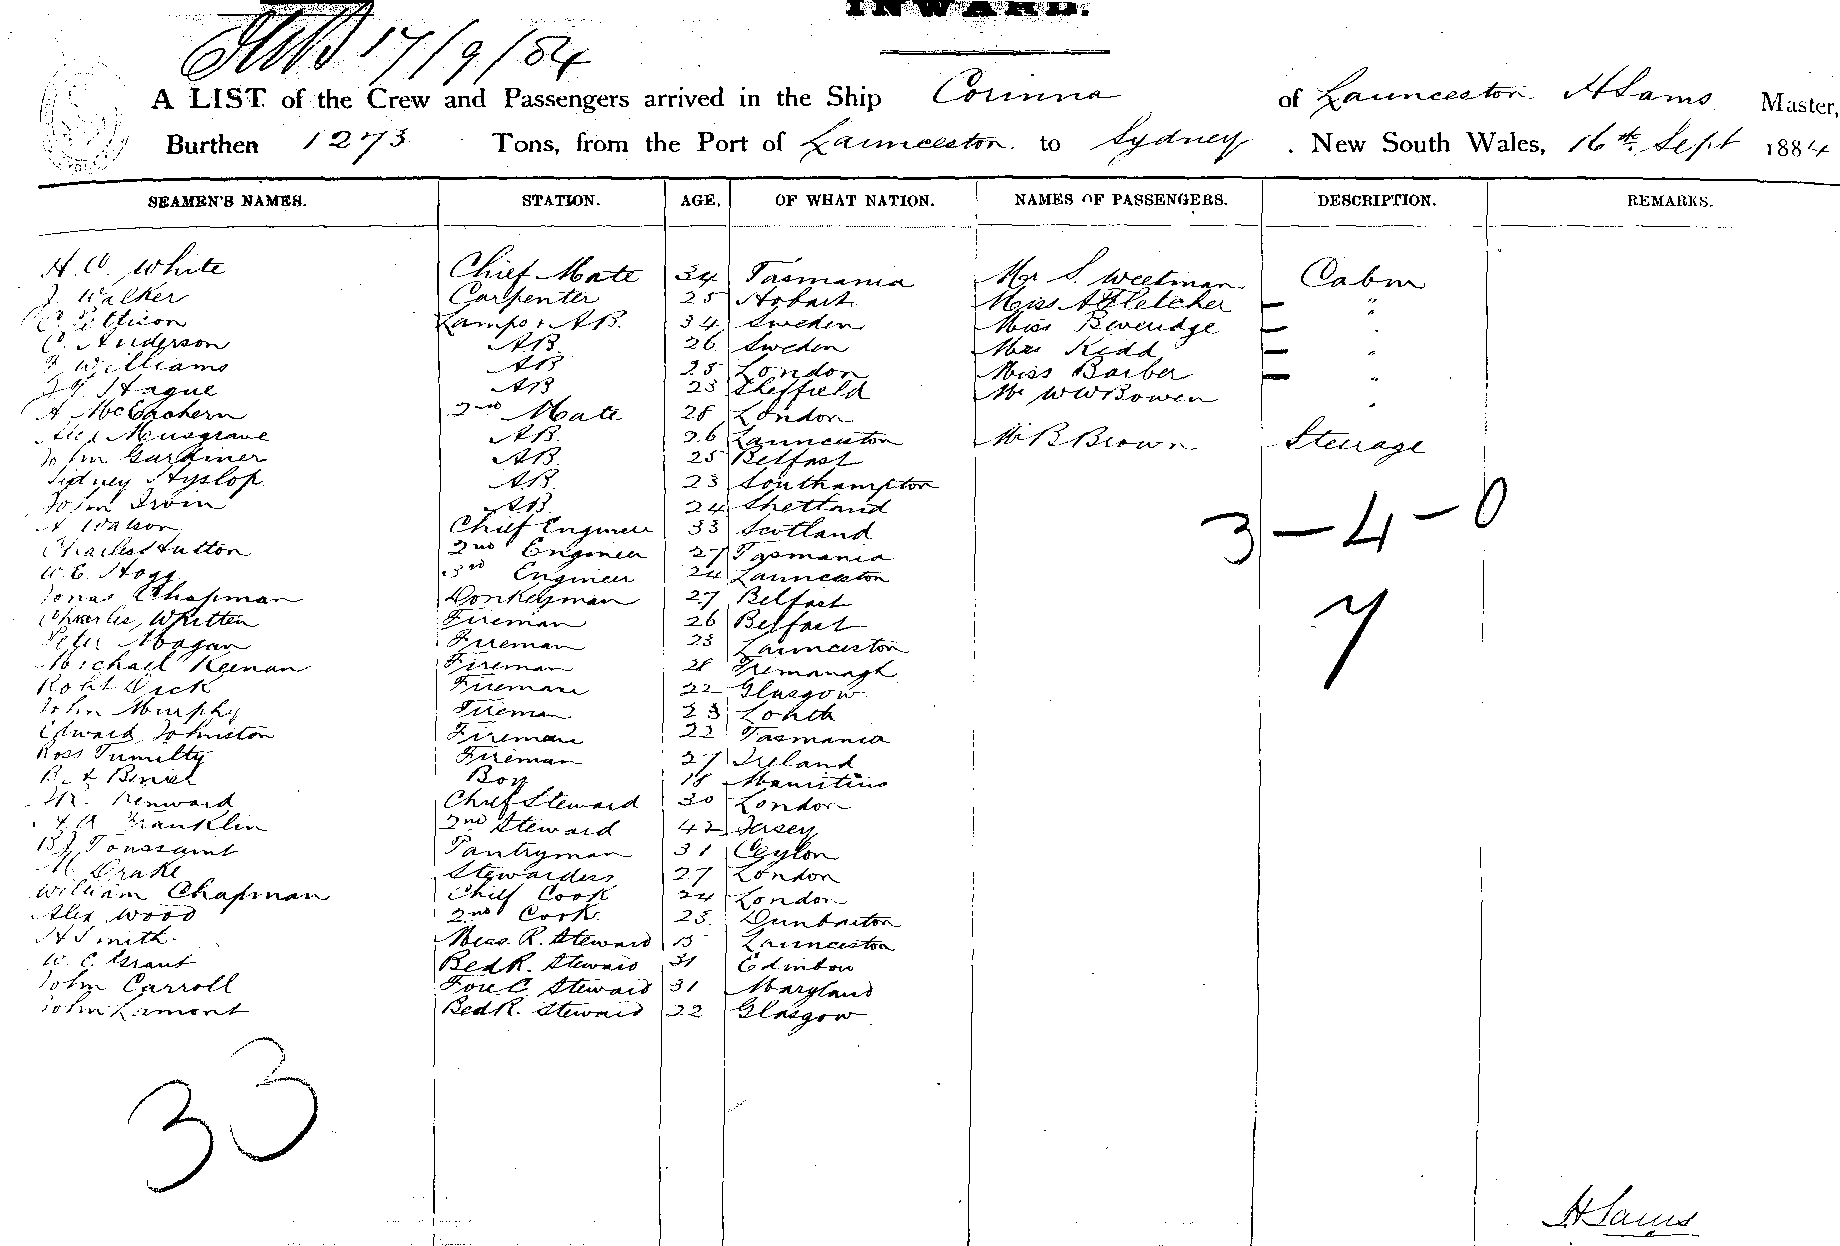 INWARD.
17/9/84
A LIST of the Crew and Passengers arrived in the Ship Corinna of Launceston H Sams Master,
Burthen 1273 Tons, from the Port of Launceston to Sydney. New South Wales, 16th Sept 1884
SEAMEN'S NAMES. STATION. AGE. OF WHAT NATION. NAMES OF PASSENGERS. DESCRIPTION. REMARKS.
White Chief Mate 34 Tasmania Mr S. Weetman Cabin
J. Walker Carpenter 25 Hobart Miss A Fletcher "
Lamps & AB. 34 Sweden Miss Beveridge "
C. Anderson AB 26 Sweden Kidd "
Williams AB 25 London Miss Barber "
Hague AB 23 Sheffield Mr W W Bowen "
A McEachern 2nd Mate 28 London
Alex Musgrave AB. 26 Launceston Mr B Brown Steerage
John Gardiner AB. 25 Belfast
Sidney Hyslop AB. 23 Southampton
John Irvin AB. 24 Shetland
Chief Engineer 33 Scotland
3-4-0
Charles Hutton 2nd Engineer 27 Tasmania
W.E. Hogg 3rd Engineer 24 Launceston
Jonas Chapman Donkeyman 27 Belfast
Charles Whitten Fireman 26 Belfast
7
Peter Fireman 23 Launceston
Michael Keenan Fireman 28 Fremanagh
Robt Dick Fireman 22 Glasgow
John Murphy Fireman 23 Louth
Edward Johnston Fireman 22 Tasmania
Ross Tumilty Fireman 27 Ireland
Boy 18 Mauritius
Kenward Chief Steward 30 London
Franklin 2nd Steward 42 Jersey
Toussaint Pantryman 31 Ceylon
M Drake Stewardess 27 London
William Chapman Chief Cook 24 London
Alex Wood 2nd Cook 23 Dunbarton
H Smith Mess R. Steward 15 Launceston
W. C. Grant Bed R. Steward 31 Edinbow
John Carroll Fore C. Steward 31 Maryland
John Lamont Bed R. Steward 22 Glasgow
33
H Sams